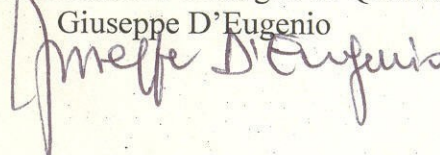 Giuseppe D’Eugenio
Giuseppe D'Eugenio